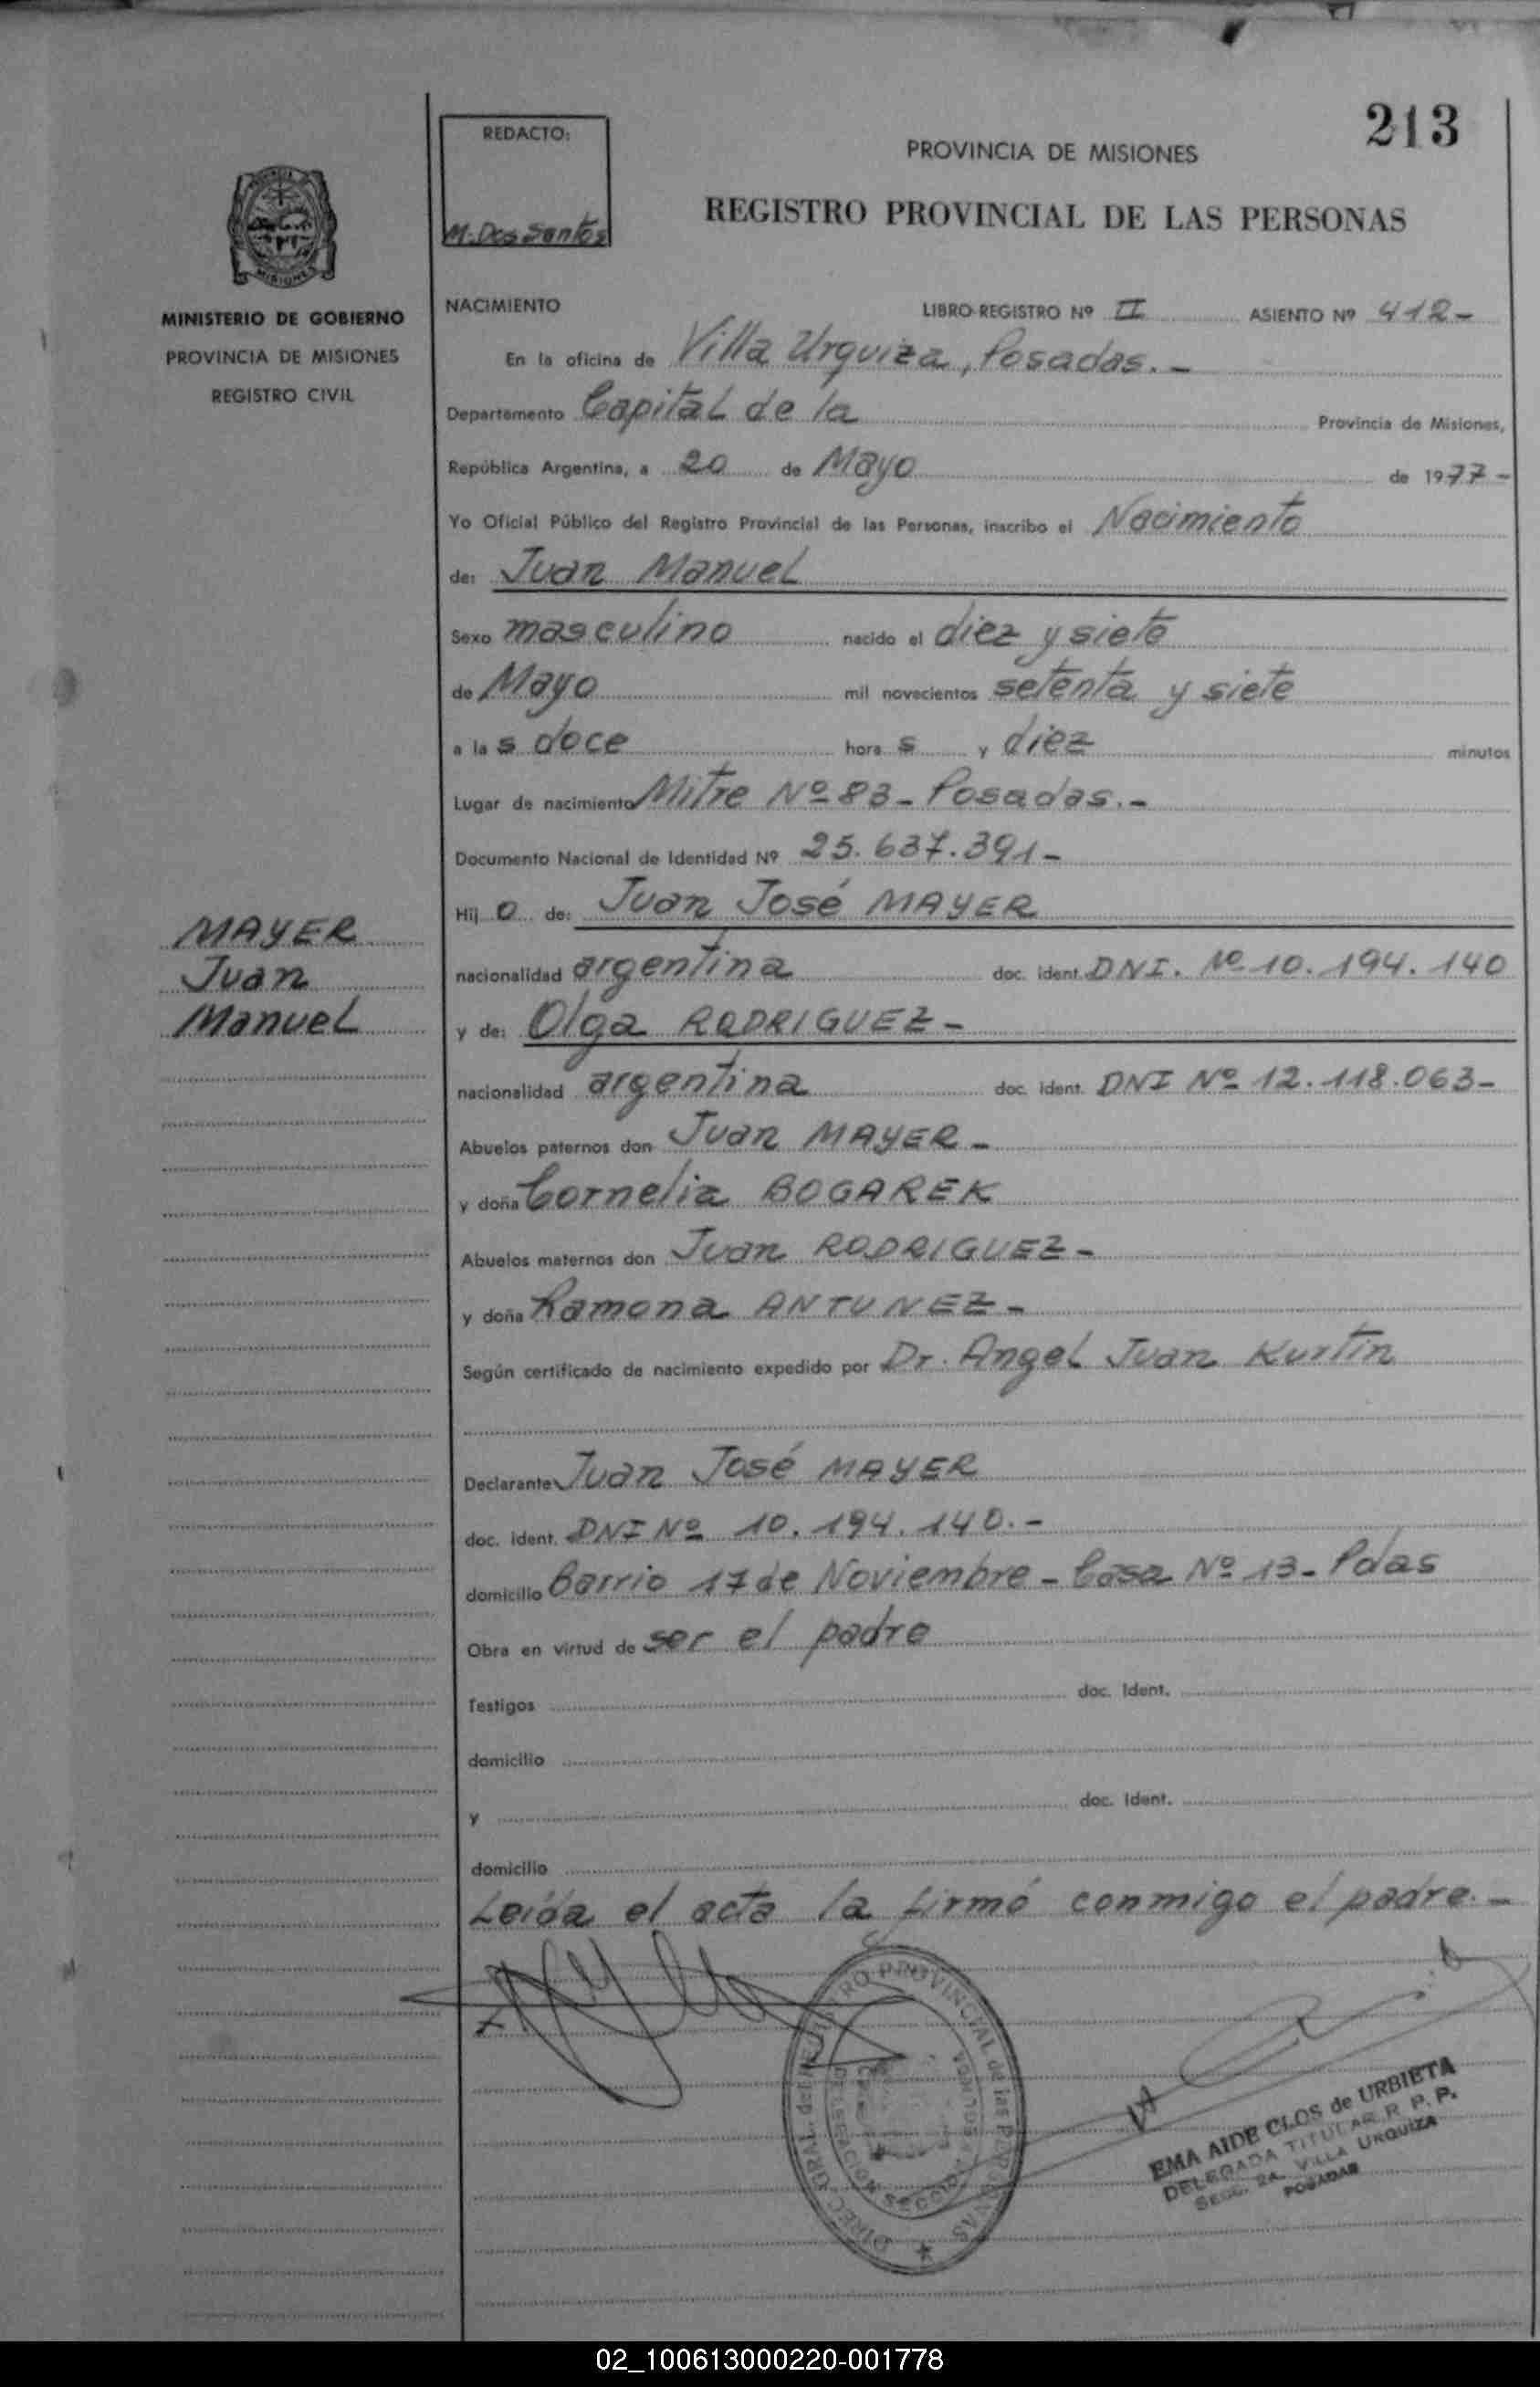 213
REDACTO:
M. Dos Santos
PROVINCIA DE MISIONES
REGISTRO PROVINCIAL DE LAS PERSONAS
MINISTERIO DE GOBIERNO
PROVINCIA DE MISIONES
REGISTRO CIVIL
NACIMIENTO LIBRO-REGISTRO Nº II ASIENTO Nº 412-
En la oficina de Villa Urquiza, Posadas.-
Departamento Capital de la Provincia de Misiones,
República Argentina, a 20 de Mayo de 1977-
Yo Oficial Público del Registro Provincial de las Personas, inscribo el Nacimiento
de: Juan Manuel
Sexo masculino nacido el diez y siete
de Mayo mil novecientos setenta y siete
a las doce horas y diez minutos
Lugar de nacimiento Mitre Nº 83- Posadas.-
Documento Nacional de Identidad Nº 25.637.391-
Hijo de: Juan José MAYER
MAYER
Juan
Manuel
nacionalidad argentina doc. ident. DNI. Nº 10.194.140
y de: Olga RODRIGUEZ-
nacionalidad argentina doc. ident. DNI Nº 12.118.063-
Abuelos paternos don Juan MAYER-
y doña Cornelia BOGAREK
Abuelos maternos don Juan RODRIGUEZ-
y doña Ramona ANTUNEZ-
Según certificado de nacimiento expedido por Dr. Angel Juan Kurtin
Declarante Juan José MAYER
doc. ident. DNI Nº 10.194.140.-
domicilio Barrio 17 de Noviembre - Casa Nº 13- Pdas
Obra en virtud de ser el padre
Testigos doc. Ident.
domicilio
y doc. Ident.
domicilio
Leída el acta la firmó conmigo el padre.-
DIREC. GRAL. del REGISTRO PROVINCIAL de las PERSONAS
DELEGACION SECCION
EMA AIDE CLOS de URBIETA
DELEGADA TITULAR R. P. P.
SECC. 2A. VILLA URQUIZA
POSADAS
02_100613000220-001778